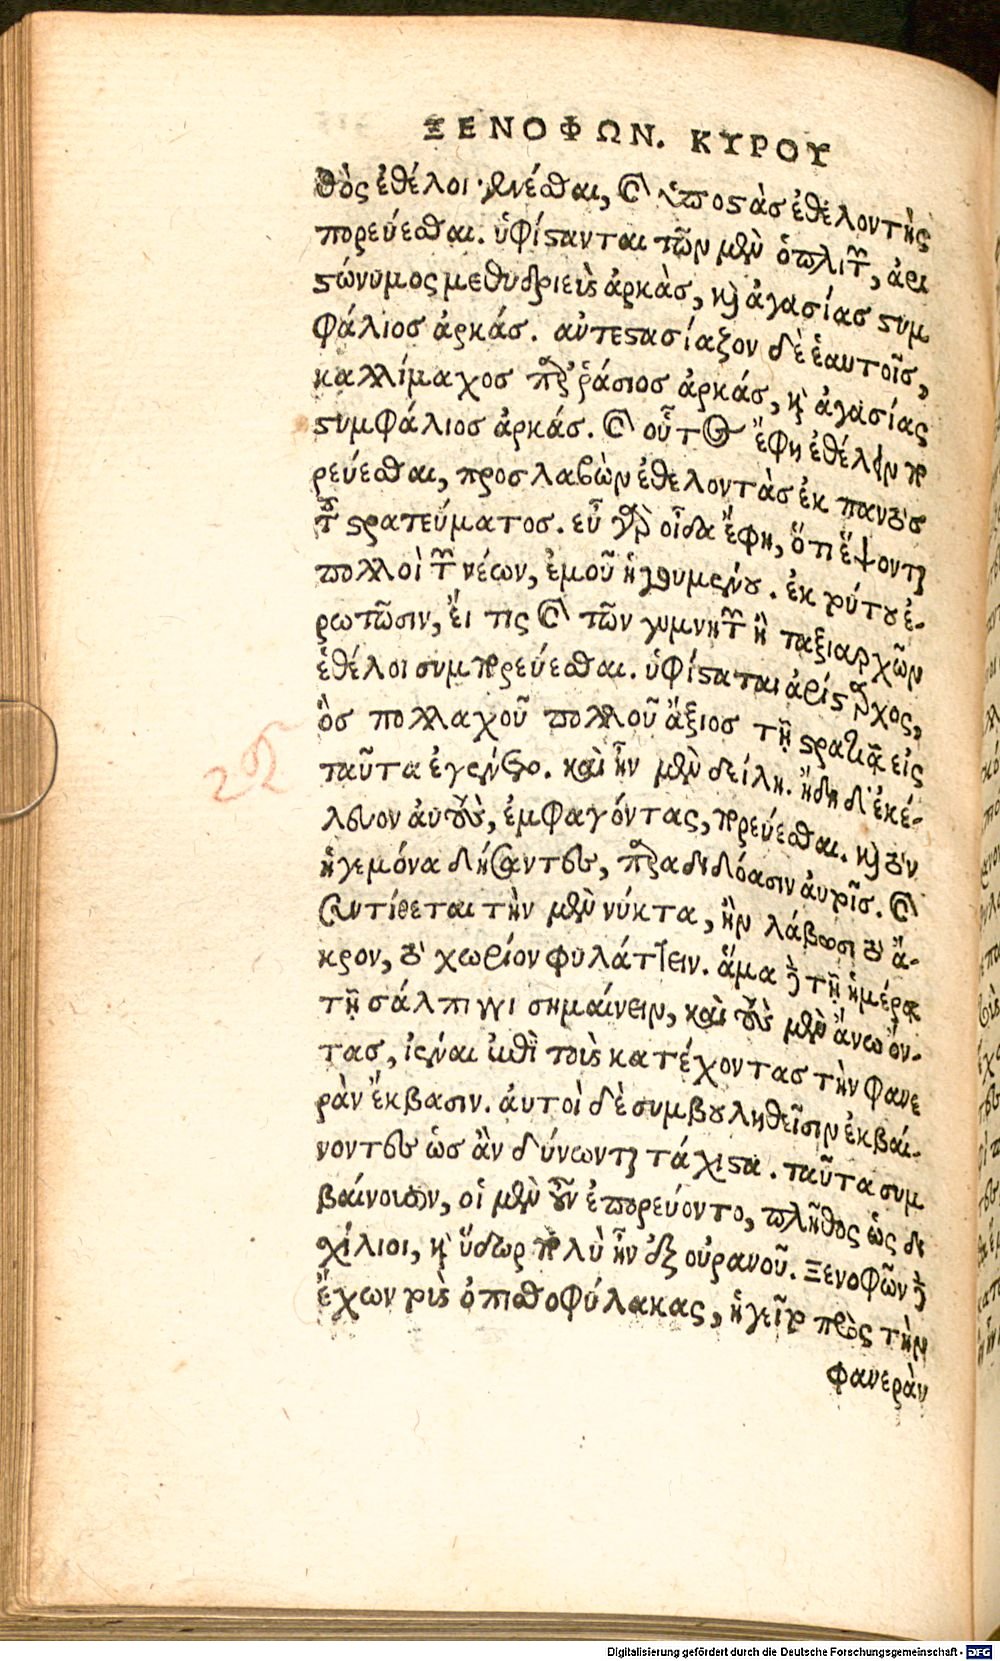 ΞΕΝΟΦΩΝ. ΚΥΡΟΥ
θὸς ἐθέλοι γενέσθαι, καὶ ὑποστὰς ἐθελοντὴς
πορεύεσθαι. ὑφίστανται τῶν μὲν ὁπλιτῶν, ἀρι
στώνυμος μεθυδριεὺς ἀρκὰς, καὶ ἀγασίας στυμ
φάλιος ἀρκάς. αὐτεστασίαζον δὲ ἑαυτοῖς,
καλλίμαχος παῤῥάσιος ἀρκάς, καὶ ἀγασίας
στυμφάλιος ἀρκάς. καὶ οὗτος ἔφη ἐθέλειν πο
ρεύεσθαι, προσλαβὼν ἐθελοντὰς ἐκ παντὸς
τοῦ στρατεύματος. εὖ γὰρ οἶδα ἔφη, ὅτι ἕψονται
πολλοὶ τῶν νέων, ἐμοῦ ἡγουμένου. ἐκ τούτου ἐ-
ρωτῶσιν, ἔι τις καὶ τῶν γυμνητῶν ἢ ταξιαρχῶν
ἐθέλοι συμπορεύεσθαι. ὑφίσταται ἀρίσταρχος,
ὃς πολλαχοῦ πολλοῦ ἄξιος τῇ στρατιᾷ εἰς
ταῦτα ἐγένετο. καὶ ἦν μὲν δείλη. ἤδη δ' ἐκέ-
λευον ἀυτοὺς, ἐμφαγόντας, πορεύεσθαι. καὶ τὸν
ἡγεμόνα δήσαντες, παραδιδόασιν ἀυτοῖς. καὶ
συντίθεται τὴν μὲν νύκτα, ἢν λάβωσι τὸ ἄ-
κρον, τὸ χωρίον φυλάττειν. ἅμα δὲ τῇ ἡμέρᾳ
τῇ σάλπιγγι σημαίνειν, καὶ τοὺς μὲν ἄνω ὄν-
τας, ἰέναι ἐπὶ τοὺς κατέχοντας τὴν φανε
ρὰν ἔκβασιν. ἀυτοὶ δὲ συμβουληθεῖσιν ἐκβαί-
νοντες ὡς ἂν δύνωνται τάχιστα. ταῦτα συμ
βαίνοισιν, οἱ μὲν οὖν ἐπορεύοντο, πλῆθος ὡς δι
χίλιοι, καὶ ὕδωρ πολὺ ἦν ἐξ οὐρανοῦ. Ξενοφῶν δὲ
ἔχων τοὺς ὀπισθοφύλακας, ἡγεῖτο πρὸς τὴν
φανερὰν
Digitalisierung gefördert durch die Deutsche Forschungsgemeinschaft - DFG